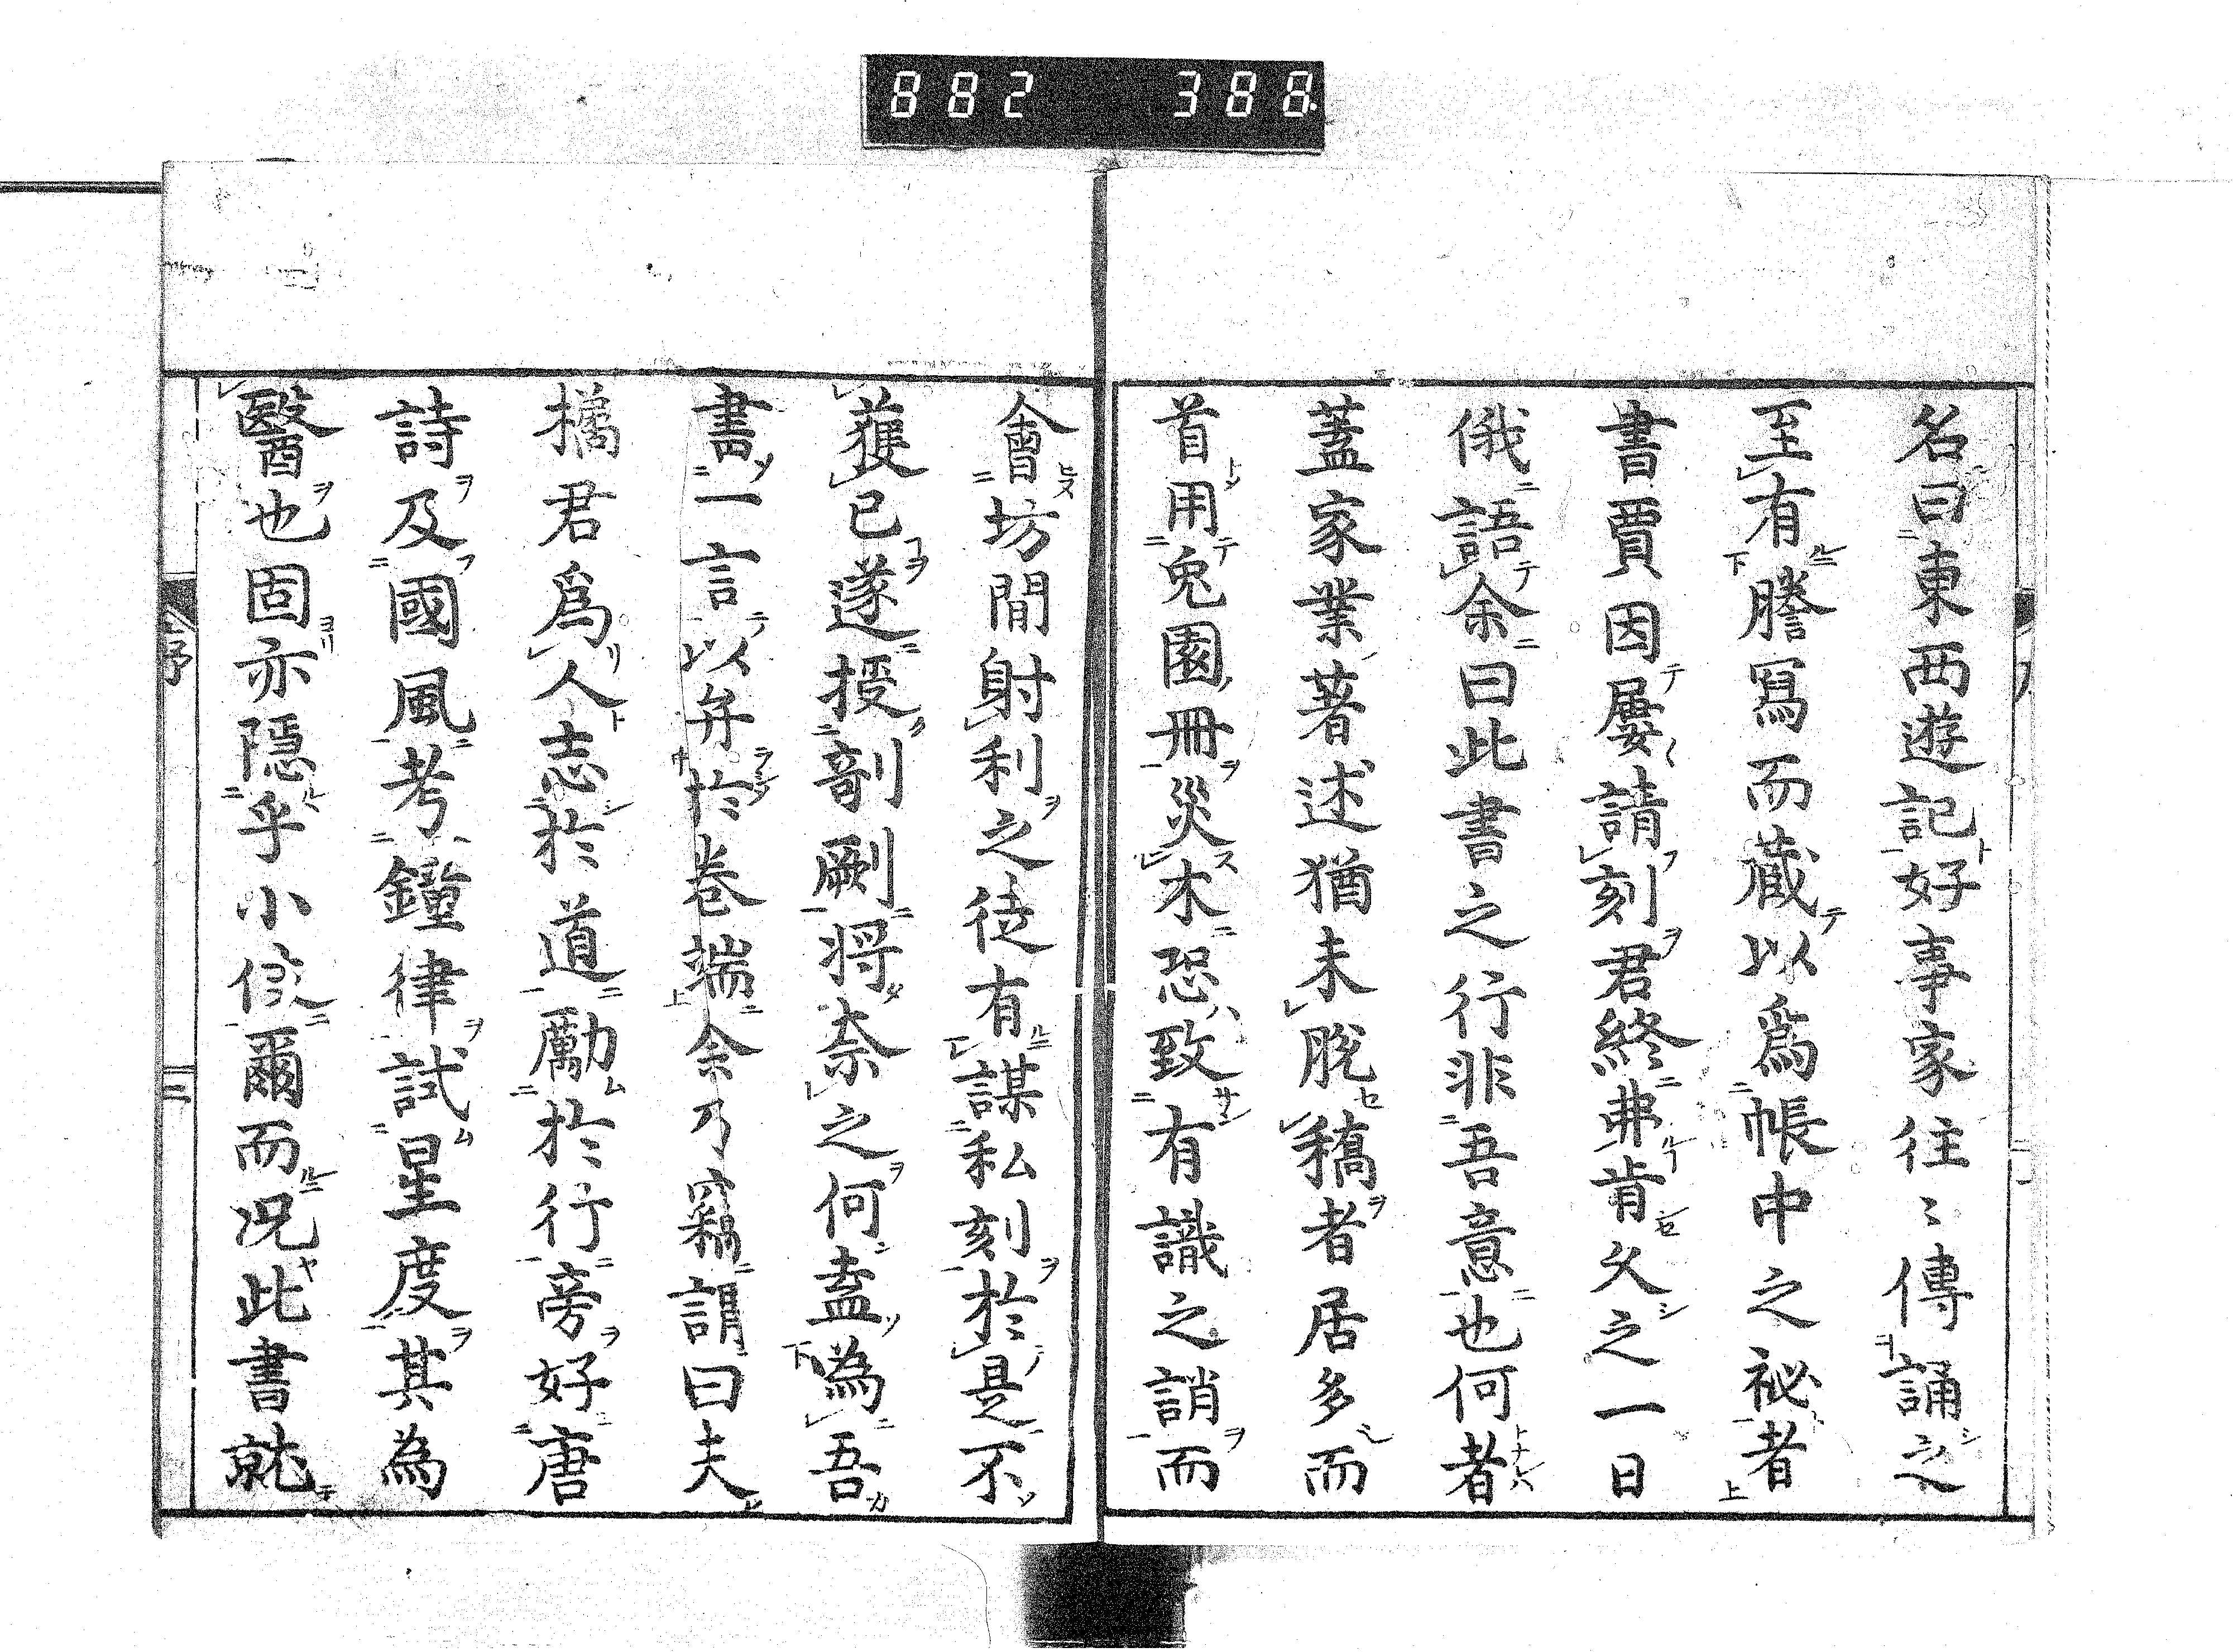 882 388
名曰東西遊記好事家往〻傳誦之
至有謄寫而藏以爲帳中之祕者
書賈因屢請刻君終弗肯久之一日
俄語余曰此書之行非吾意也何者
蓋家業著述猶未脫稿者居多而
首用兔園冊災木恐致有識之誚而
會坊間射利之徒有謀私刻於是不
獲已遂授剞劂將奈之何盍爲吾
書一言以弁於卷端余乃竊謂曰夫
橘君爲人志於道勵於行旁好唐
詩及國風考鐘律試星度其為
醫也固亦隱乎小伎爾而況此書就
序
三